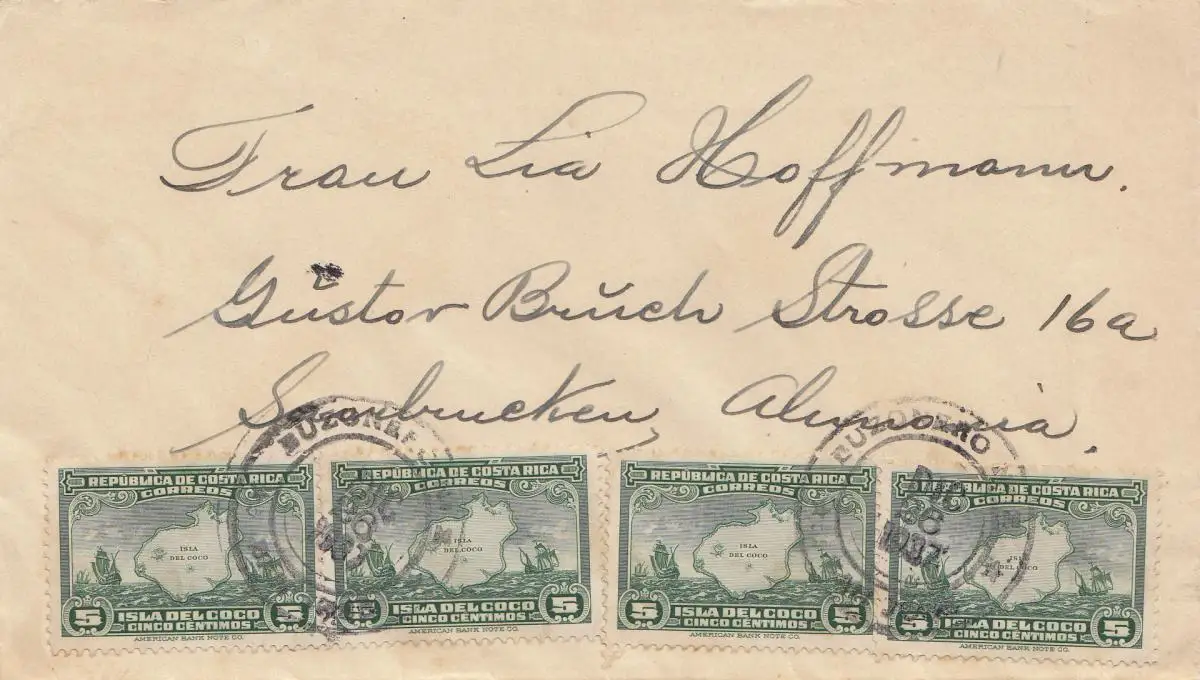 Frau Lia Hoffmann.
Gŭstav Brŭch Strasse 16a
Saarbrucken, Alemania.
BUZONERO
BUZONERO
DIC
8
1937
REPÚBLICA DE COSTA RICA
CORREOS
ISLA
DEL COCO
5 ISLA DEL COCO 5
CINCO CÉNTIMOS
AMERICAN BANK NOTE CO.
REPÚBLICA DE COSTA RICA
CORREOS
ISLA
DEL COCO
5 ISLA DEL COCO 5
CINCO CÉNTIMOS
AMERICAN BANK NOTE CO.
REPÚBLICA DE COSTA RICA
CORREOS
ISLA
DEL COCO
5 ISLA DEL COCO 5
CINCO CÉNTIMOS
AMERICAN BANK NOTE CO.
REPÚBLICA DE COSTA RICA
CORREOS
ISLA
DEL COCO
5 ISLA DEL COCO 5
CINCO CÉNTIMOS
AMERICAN BANK NOTE CO.